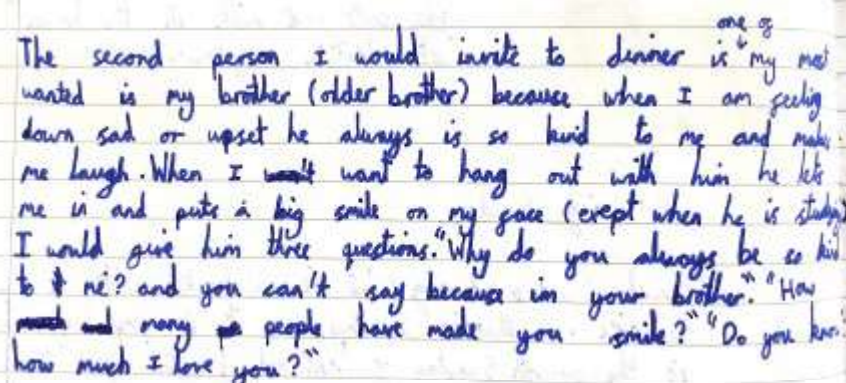 The second person I would invite to dinner is one of my most
wanted is my brother (older brother) because when I am feeling
down sad or upset he always is so kind to me and makes
me laugh. When I want to hang out with him he lets
me in and puts a big smile on my face (exept when he is studying)
I would give him three questions. "Why do you always be so kind
to me? and you can't say because im your brother." "How
many people have made you smile?" "Do you know
how much I love you?"